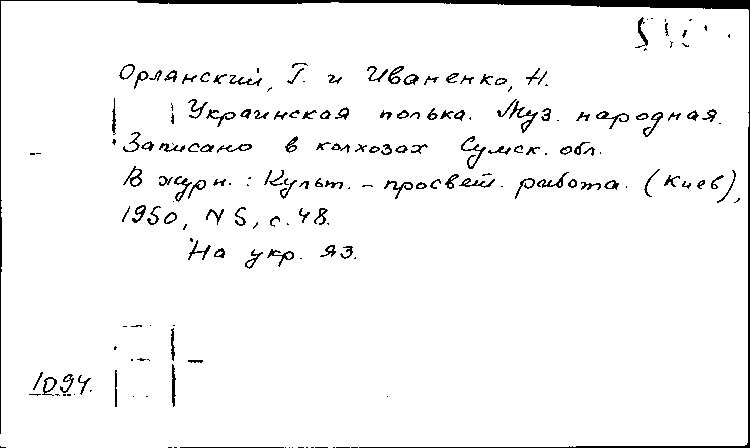 Орланский, Г. и Иваненко, Н.
Украинская полька. Муз. народная.
Записано в колхозах Сумск. обл.
В журн.: Культ.-просвет. работа. (Киев),
1950, N 5, с. 48.
На укр. яз.
1094.